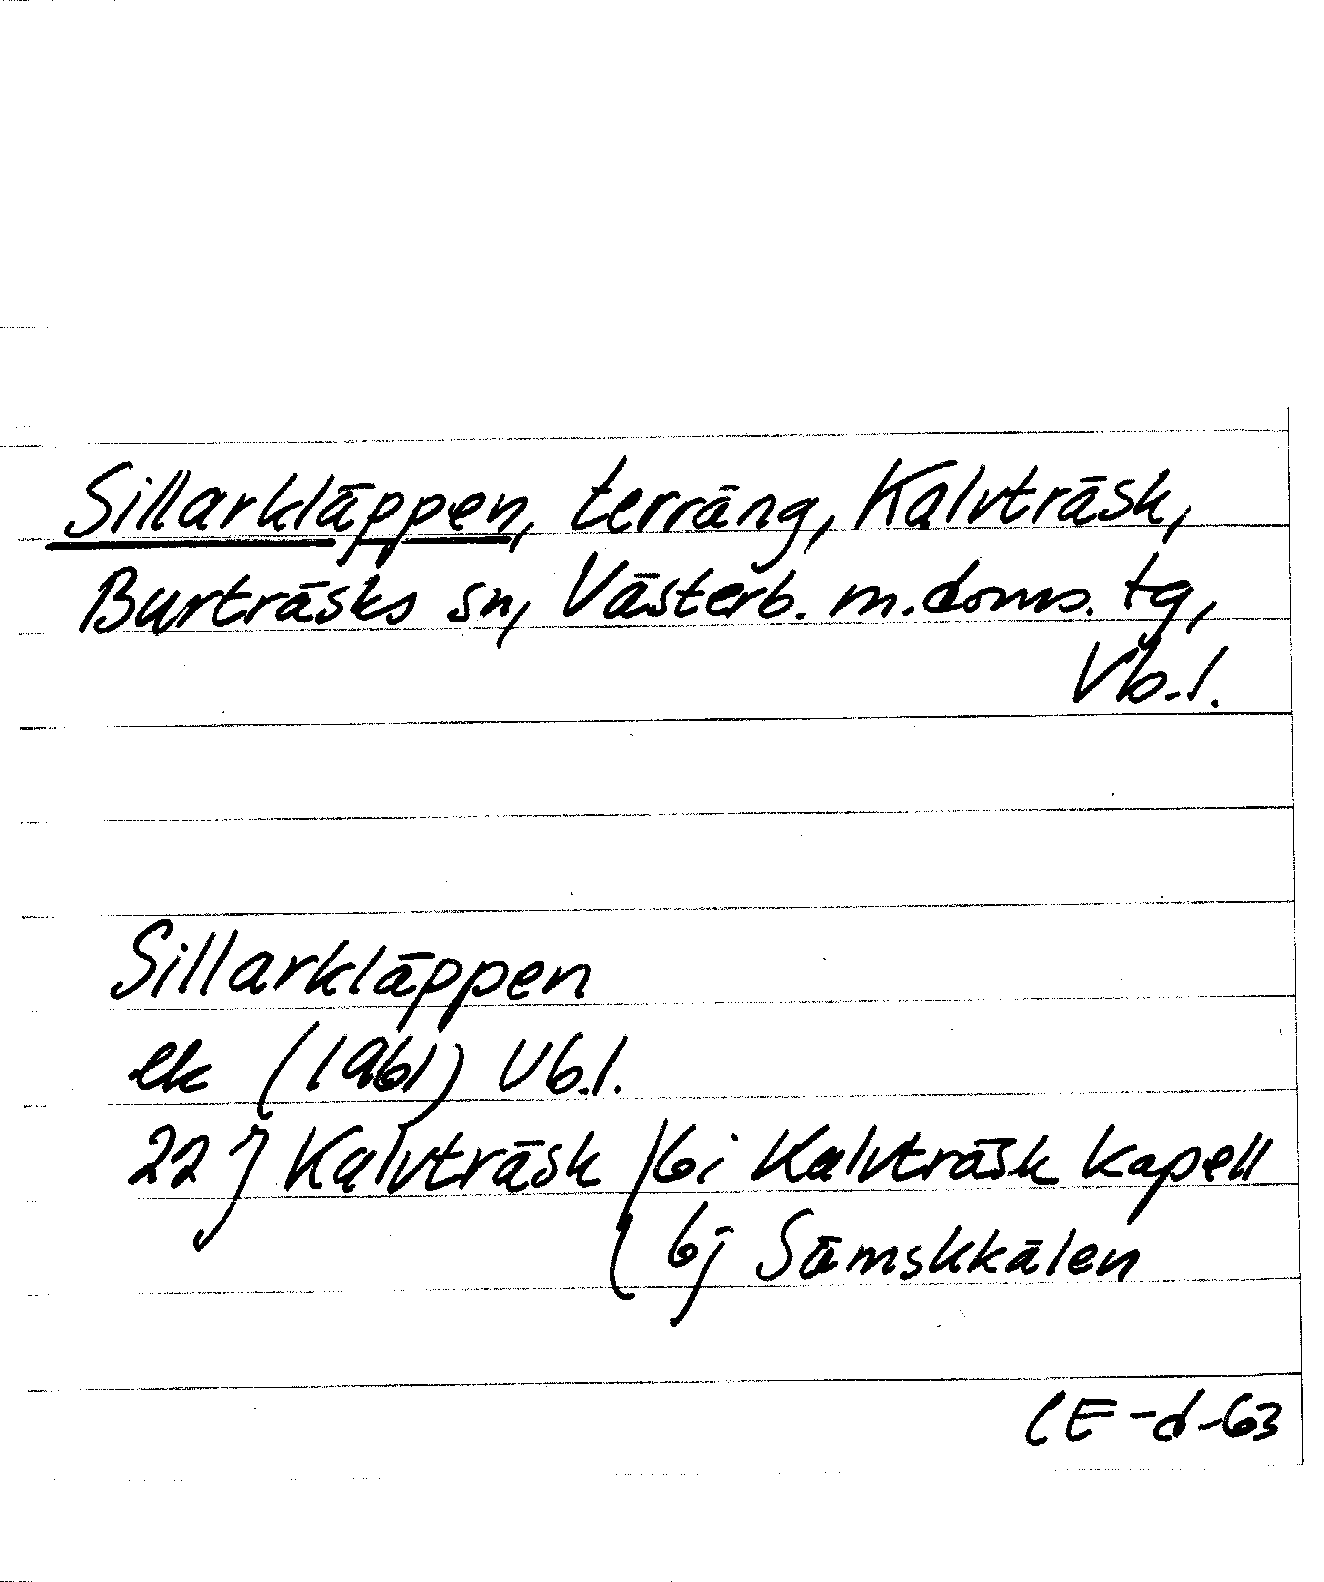 Sillarkläppen, terräng, Kalvträsk,
Burträsks sn, Västerb. m. doms. tg,
Vb.l.
Sillarkläppen
ek (1961) Vb.l.
22 J Kalvträsk 6i Kalvträsk kapell
6j Sämskkålen
CE-d-63